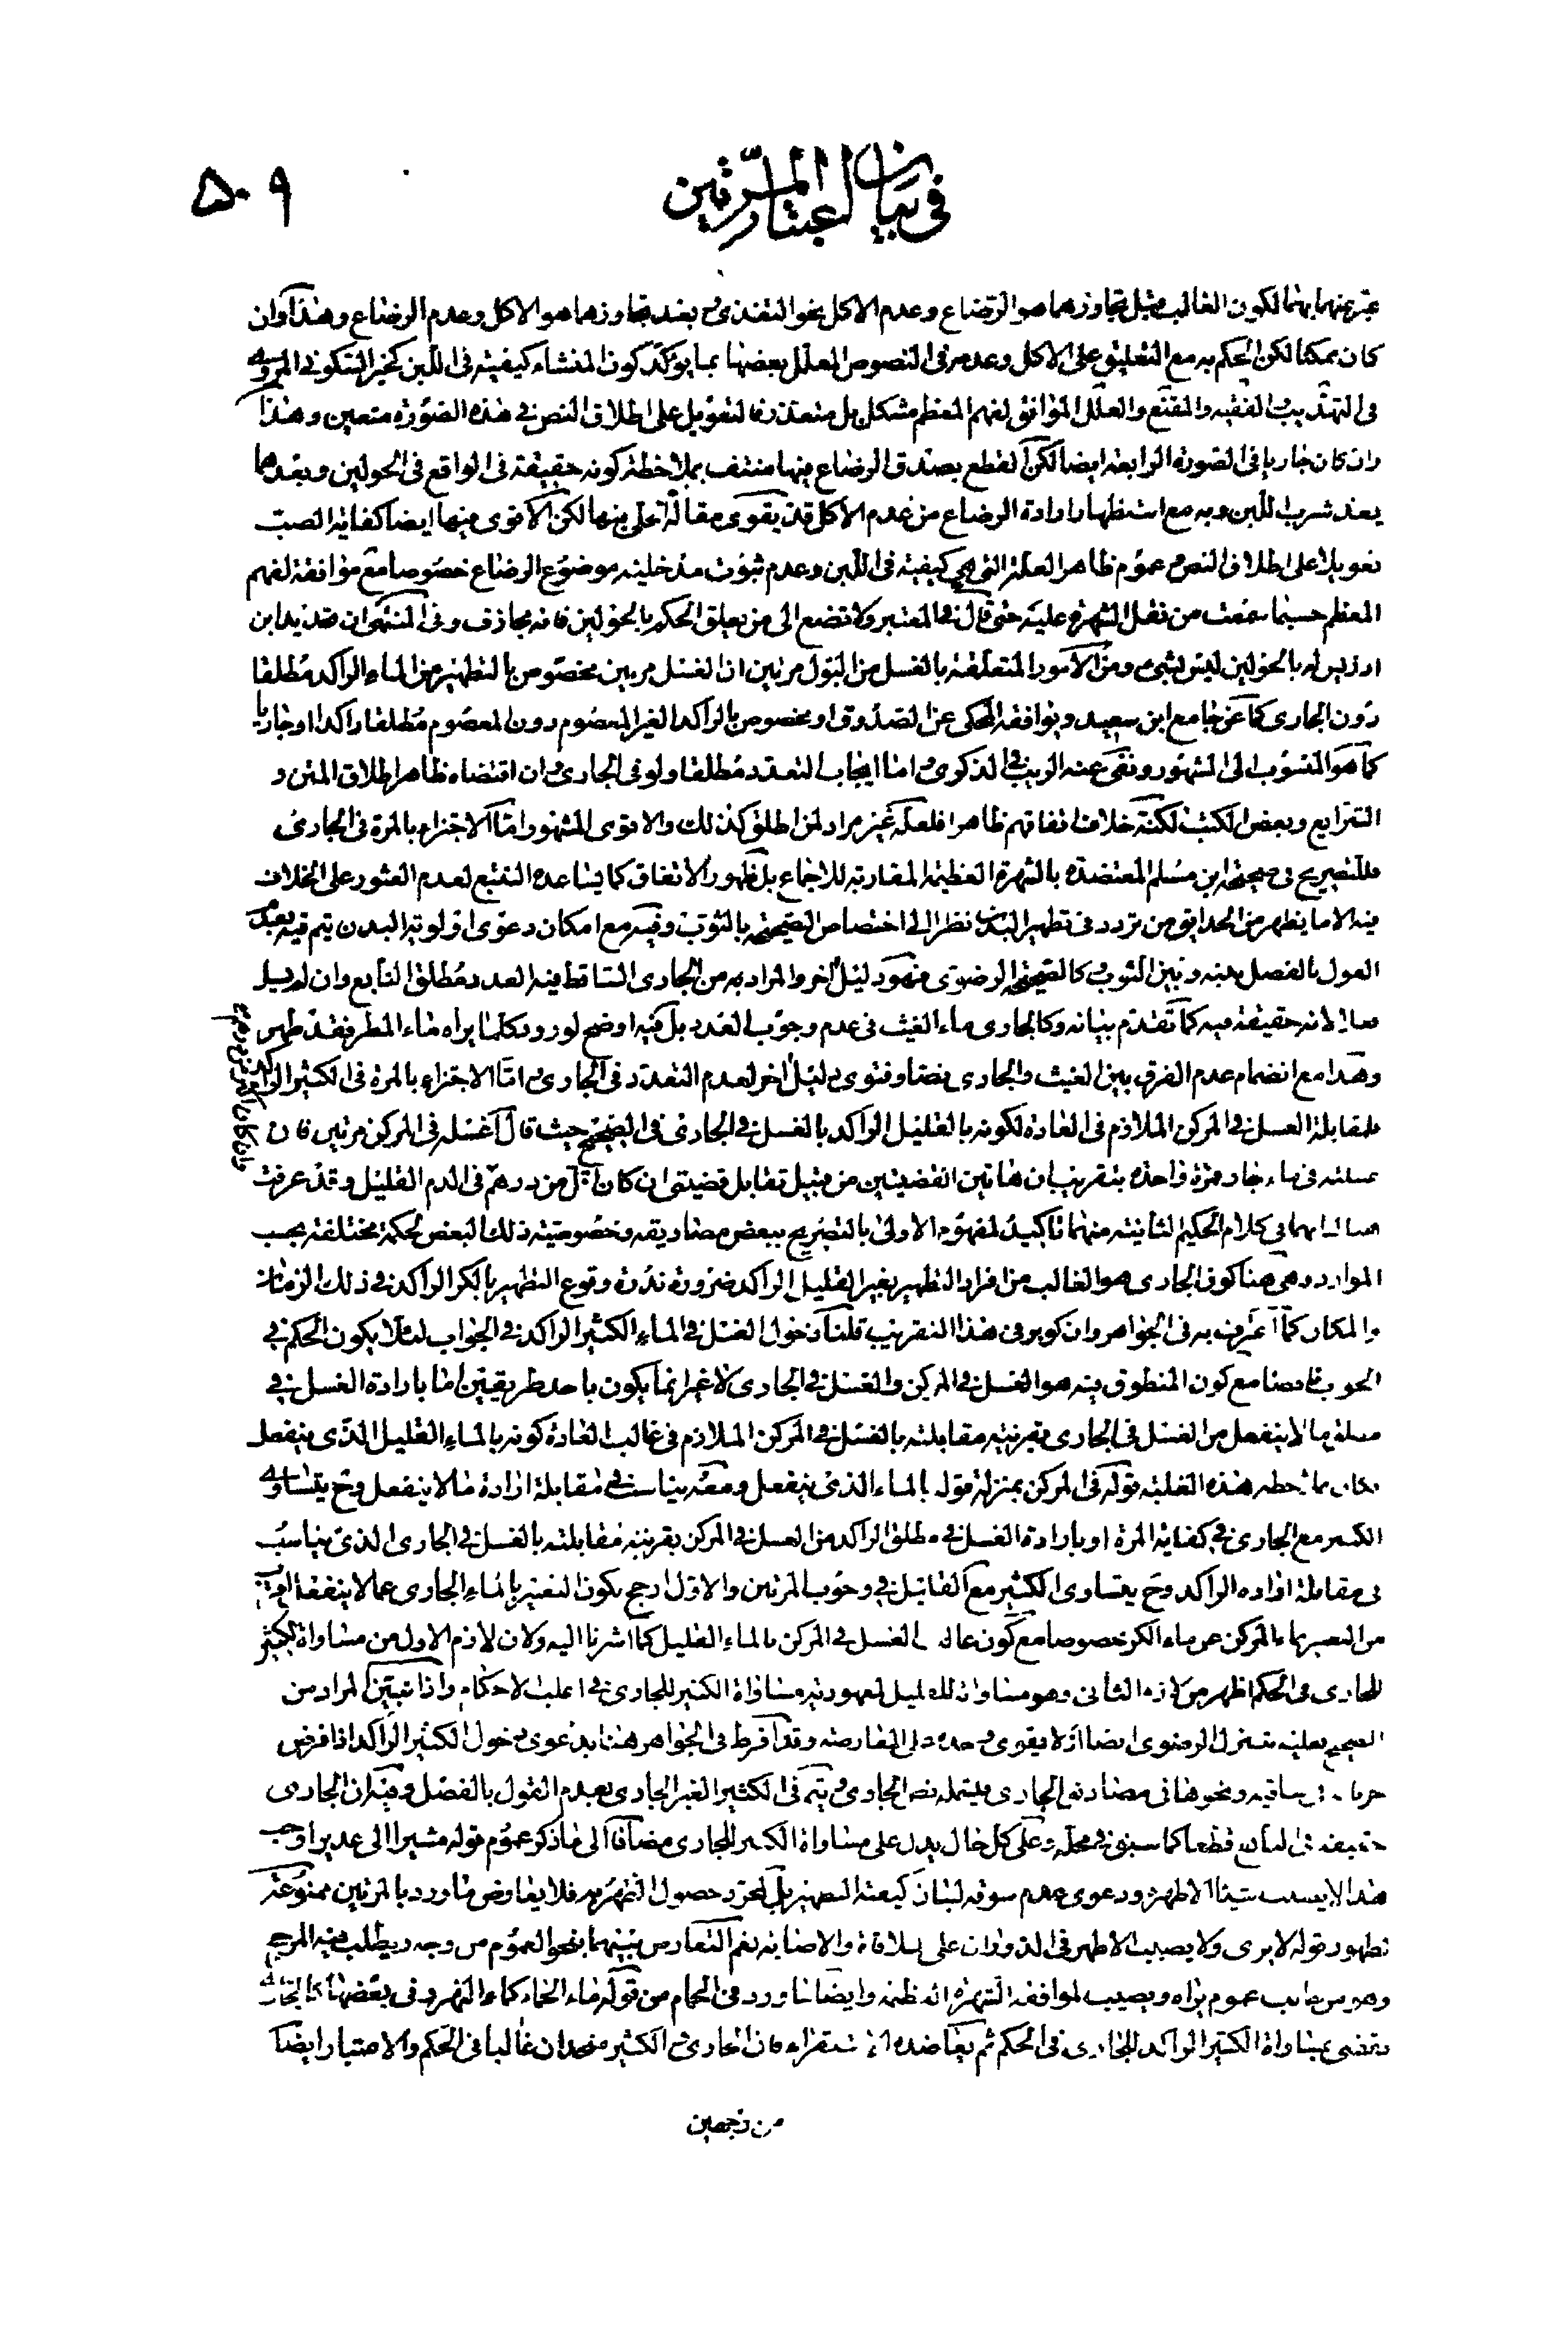 في بيان اعتبار المرتين
٥٠٩
عبر عنهما بهما لكون الغالب قبل تجاوزهما هو الرضاع وعدم الاكل بنحو التغذى وبعد تجاوزهما هو الاكل وعدم الرضاع وهذا وان
كان ممكنا لكن الحكم به مع التعليق على الاكل وعدمه في النصوص المعلل بعضها بما يؤكد كون المنشاء كيفيته في اللبن كخبر السكوني المروي
في التهذيب والفقيه والمقنع والعلل الموافق لفهم المعظم مشكل بل متعذر فالتعويل على اطلاق النص في هذه الصورة متعين وهذا
وان كان جاريا في الصورة الرابعة ايضا لكن القطع بصدق الرضاع فيها منتف بملاحظة كونه حقيقة في الواقع في الحولين وبعدهما
يعد شرب اللبن وبه مع استظهار ارادة الرضاع من عدم الاكل قد يقوى مقالة الحلي فيها لكن الاقوى فيها ايضا كفاية الصب
تعويلا على اطلاق النص وعموم ظاهر العلة التي هي كيفية في اللبن وعدم ثبوت مدخلية موضوع الرضاع خصوصا مع موافقة لفهم
المعظم حسبما سمعت من نقل الشهرة عليه حتى قال في المعتبر ولا تضع الى من يعلق الحكم بالحولين فانه مجازف وفي المنتهى ان تحديد ابن
ادريس له بالحولين ليس بشئ ومن الامور المتعلقة بالغسل من البول مرتين ان الغسل مرتين مخصوص بالتطهير من الماء الراكد مطلقا
دون الجاري كما عن جامع ابن سعيد ويوافقه المحكي عن الصدوق او مخصوص بالراكد الغير المعصوم دون المعصوم مطلقا راكدا او جاريا
كما هو المنسوب الى المشهور ونفى عنه الريب في الذكرى اما ايجاب التعدد مطلقا ولو في الجاري وان اقتضاه ظاهر اطلاق المتن و
الشرايع وبعض الكتب لكنه خلاف اتفاقهم ظاهرا فلعله غير مراد لمن اطلق كذلك والاقوى المشهور اما الاجتزاء بالمرة في الجاري
فللتصريح في صحيحة ابن مسلم المعتضدة بالشهرة العظيمة المقاربة للاجماع بل ظهور الاتفاق كما يساعده التتبع لعدم العثور على الخلاف
فيه الا ما يظهر من الحدايق من تردد في تطهير البدن نظرا الى اختصاص الصحيحة بالثوب وفيه مع امكان دعوى اولوية البدن يتم فيه بعدم
القول بالفصل بينه وبين الثوب كالصحيحة الرضوي فهو دليل اخر والمراد به من الجاري الساقط فيه العدد مطلق النابع وان لم يسل
لانه حقيقة فيه كما تقدم بيانه وكالجاري ماء الغيث في عدم وجوب العدد بل فيه اوضح لورود كلما يراه ماء المطر فقد طهر
وهذا مع انضمام عدم الفرق بين الغيث والجاري نصا وفتوى دليل اخر لعدم التعدد في الجاري واما الاجتزاء بالمرة في الكثير الراكد
فلمقابلة الغسل في المركن الملازم في العادة لكونه بالقليل الراكد بالغسل في الجاري في الصحيح حيث قال اغسله في المركن مرتين فان
غسلته في ماء جار فمرة واحدة بتقريب ان هاتين القضيتين من قبيل تقابل قضيتي ان كان اقل من درهم في الدم القليل وقد عرفت
في كلام الحكيم الثانية منهما تاكيد لمفهوم الاولى بالتصريح ببعض مصاديقه وخصوصية ذلك البعض لحكمة مختلفة بحسب
الموارد وهي هنا كون الجاري هو الغالب من افراد التطهير بغير القليل الراكد ضرورة ندرة وقوع التطهير بالكر الراكد في ذلك الزمان
والمكان كما اعترف به في الجواهر وان كوبر في هذا التقريب قلنا دخول الغسل في الماء الكثير الراكد في الجواب لئلا يكون الحكم في
الجواب ناقصا مع كون المنطوق فيه هو الغسل في المركن والغسل في الجاري لا غير انما يكون باحد طريقين اما بارادة الغسل في
بما لا ينفعل من الغسل في الجاري بقرينة مقابلته بالغسل في المركن الملازم في غالب العادة كونه بالماء القليل الذي ينفعل
هذه الغلبة قوله في المركن بمنزلة قوله بالماء الذي ينفعل ومعه يناسب في مقابلة ارادة ما لا ينفعل وح يتساوى
الكثير مع الجاري في كفاية المرة او بارادة الغسل في مطلق الراكد من الغسل في المركن بقرينة مقابلته بالغسل في الجاري الذي يناسب
في مقابلة ارادة الراكد وح يتساوى الكثير مع القليل في وجوب المرتين والاول ارجح لكون التعبير بالماء الجاري عما لا ينفعل
من التعبير بماء المركن عن ماء الكر خصوصا مع كون الغسل في المركن بالماء القليل كما اشرنا اليه ولان لازم الاول من مساواة الكثير
للجاري في الحكم اظهر من لازم الثاني وهو مساواته للقليل لمعهودية مساواة الكثير للجاري في اغلب الاحكام واذا تبين المراد من
الصحيح فعليه يتنزل الرضوي ايضا اذ لا يقوى وحده على المعارضة وقد افرط في الجواهر هنا بدعوى دخول الكثير الراكد اذا فرض
ساقيه ونحوها في مصاديق الجاري فيشمله نص الجاري ويتم في الكثير الغير الجاري بعدم القول بالفصل وفيه ان الجاري
حقيقة في النابع قطعا كما سبق في محله وعلى كل حال يدل على مساواة الكثير للجاري مضافا الى ما ذكر عموم قوله مشيرا الى غدير
هذا لا يصيب شيئا الا طهره ودعوى عدم سوقه لبيان كيفية التطهير بل لمجرد حصول التطهر به فلا يعارض ما ورد بالمرتين ممنوعة
بظهور قوله لا يرى ولا يصيب الا طهر في الدوران على الملاقاة والاصابة نعم التعارض بينهما بنحو العموم من وجه ويطلب فيه المرجح
وهو من جانب عموم يراه ويصيب لموافقة الشهرة العظيمة وايضا ما ورد في الحمام من قوله ماء الحمام كماء النهر وفي بعضها كالجاري
يقضي بمساواة الكثير الراكد للجاري في الحكم ثم يعاضده الاستقراء فان الجاري والكثير متحدان غالبا في الحكم والاعتبار ايضا
من زحمين